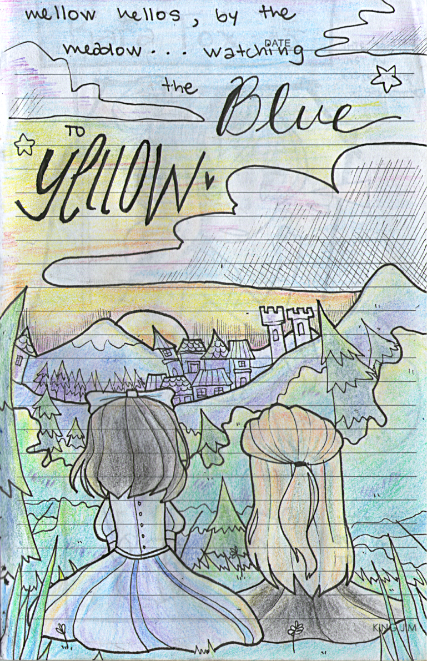 mellow hellos, by the
meadow... watching
DATE
the Blue
TO
YELLOW
KING JIM